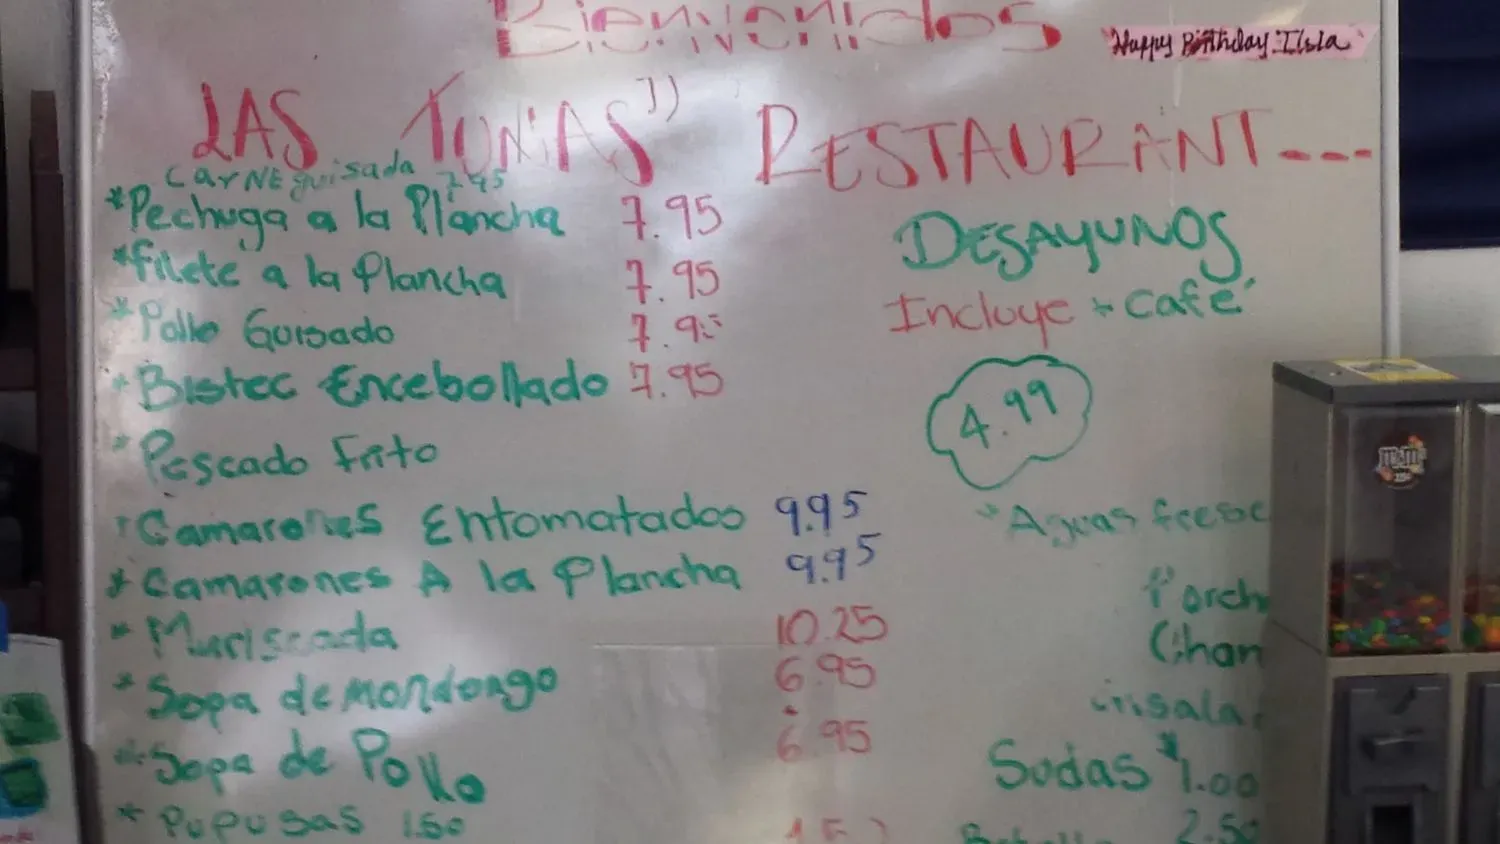 Bienvenidos
Happy Birthday Isla
LAS TUNAS RESTAURANT---
Carne guisada 7.95
*Pechuga a la Plancha 7.95
*Filete a la Plancha 7.95
*Pollo Guisado 7.95
*Bistec Encebollado 7.95
*Pescado Frito
*Camarones Entomatados 9.95
*Camarones A la Plancha 9.95
*Mariscada 10.25
*Sopa de mondongo 6.95
*Sopa de Pollo 6.95
*Pupusas 1.50
DESAYUNOS
Incluye * Café
4.99
*Aguas fresc
Horch
Chan
ensala
Sodas *1.00
2.50
M&M